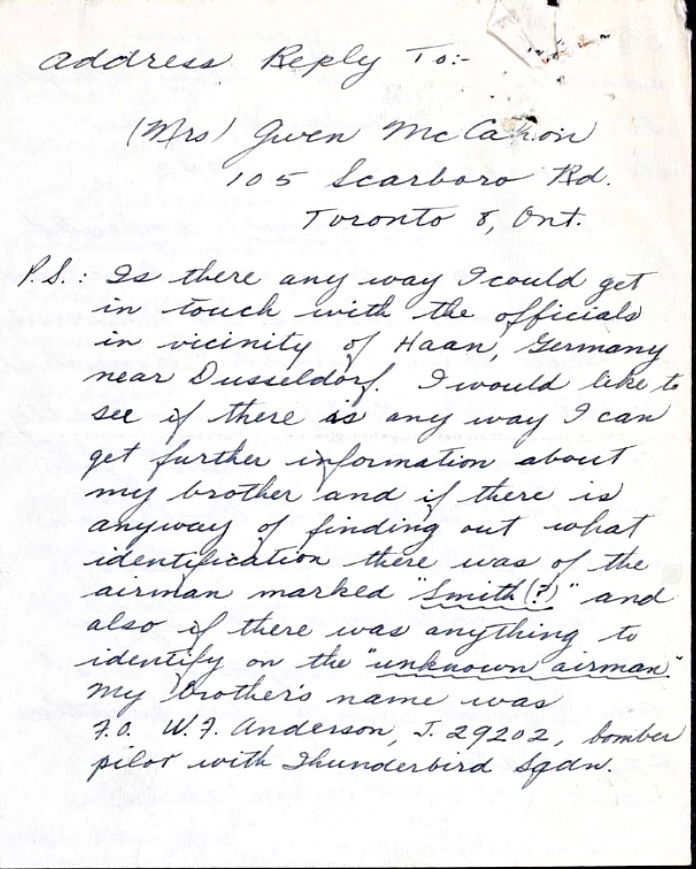 Address Reply To:-
(Mrs) Gwen McCahon
105 Scarboro Rd.
Toronto 8, Ont.
P.S.: Is there any way I could get
in touch with the officials
in vicinity of Haan, Germany
near Dusseldorf. I would like to
see if there is any way I can
get further information about
my brother and if there is
anyway of finding out what
identification there was of the
airman marked "Smith(?)" and
also if there was anything to
identify on the "unknown airman".
My brother's name was
F.O. W.F. Anderson, J.29202, bomber
pilot with Thunderbird Sqdn.